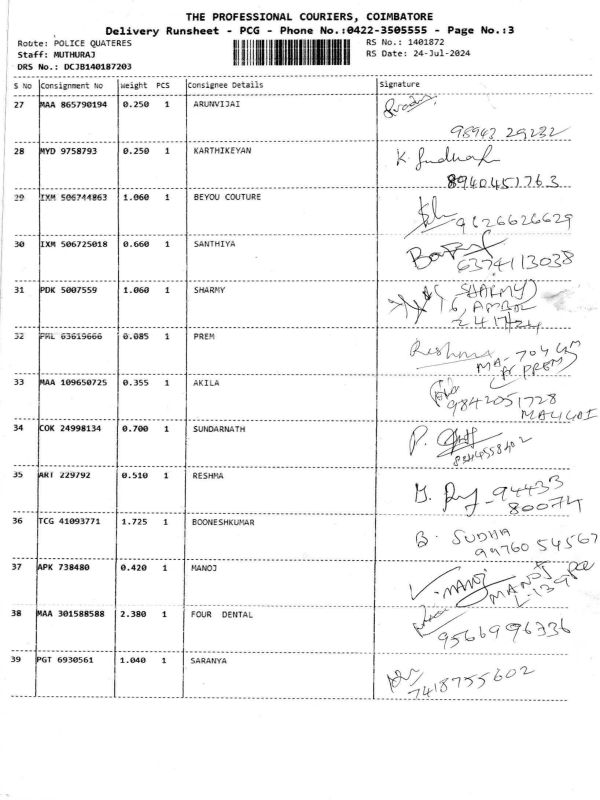 THE PROFESSIONAL COURIERS, COIMBATORE
Delivery Runsheet - PCG - Phone No.:0422-3505555 - Page No.:3
Route: POLICE QUATERES RS No.: 1401872
Staff: MUTHURAJ RS Date: 24-Jul-2024
DRS No.: DCJB140187203
S No Consignment No Weight PCS Consignee Details Signature
27 MAA 865790194 0.250 1 ARUNVIJAI
98943 29232
28 MYD 9758793 0.250 1 KARTHIKEYAN
8940451763
29 IXM 506744863 1.060 1 BEYOU COUTURE
9626626629
30 IXM 506725018 0.660 1 SANTHIYA
6374113038
31 PDK 5007559 1.060 1 SHARMY
SHARMY
24/7/24
32 PHL 63619666 0.085 1 PREM
Reshma MA-704
PREM
33 MAA 109650725 0.355 1 AKILA
9842051728
34 COK 24998134 0.700 1 SUNDARNATH
P.
35 ART 229792 0.510 1 RESHMA
94433
80074
36 TCG 41093771 1.725 1 BOONESHKUMAR
B. SUDHA
99760 54567
37 APK 738480 0.420 1 MANOJ
MANOJ MANOJ
L-139
38 MAA 301588588 2.380 1 FOUR DENTAL
9566996336
39 PGT 6930561 1.040 1 SARANYA
7418755602